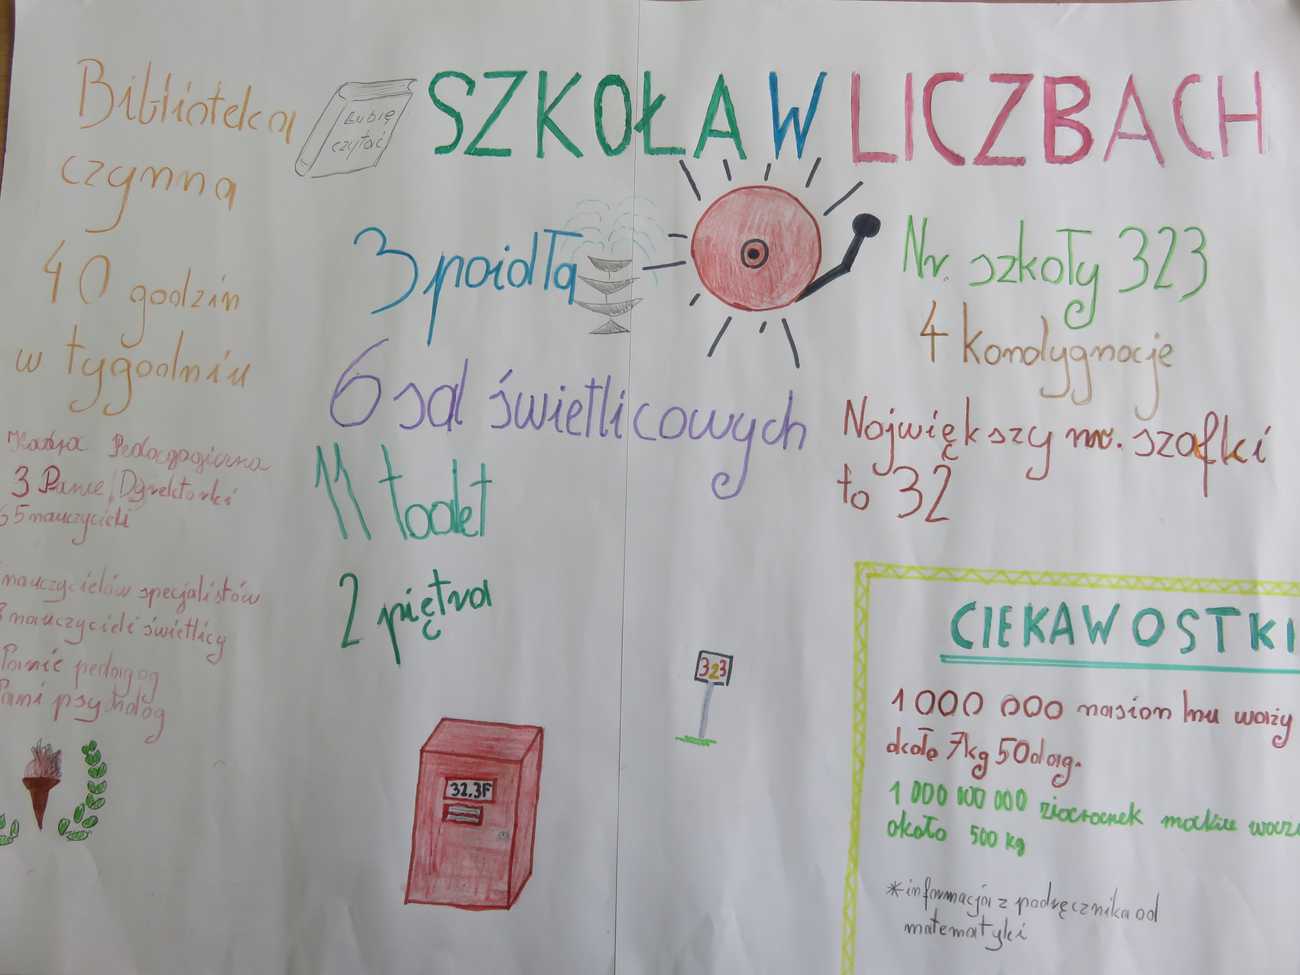 SZKOŁA W LICZBACH
Biblioteka
czynna
40 godzin
w tygodniu
Lubię
czytać
3 poidła
6 sal świetlicowych
11 toalet
2 piętra
Nr. szkoły 323
4 kondygnacje
Największy nr. szafki
to 32
Kadra Pedagogiczna
3 Panie Dyrektorki
65 nauczycieli
nauczycielów specjalistów
nauczycieli świetlicy
Panie pedagog
Pani psycholog
323
32.3F
CIEKAWOSTKI
1 000 000 nasion lnu waży
około 7kg 50dag.
1 000 000 000 ziarenek maku
około 500 kg
*informacja z podręcznika od
matematyki